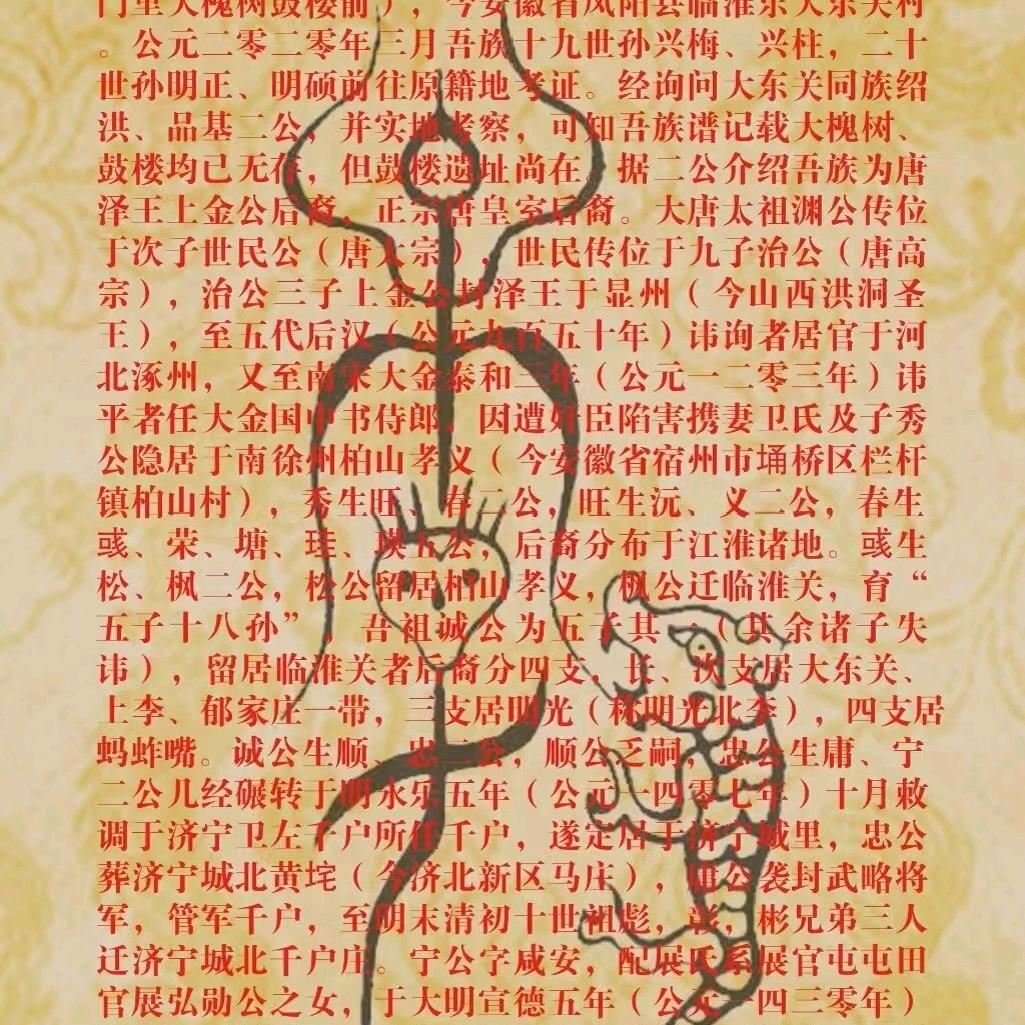 门里大槐树鼓楼前），今安徽省凤阳县临淮东大东关村
。公元二零二零年三月吾族十九世孙兴梅、兴柱，二十
世孙明正、明硕前往原籍地考证。经询问大东关同族绍
洪、品基二公，并实地考察，可知吾族谱记载大槐树、
鼓楼均已无存，但鼓楼遗址尚在，据二公介绍吾族为唐
泽王上金公后裔，正宗唐皇室后裔。大唐太祖渊公传位
于次子世民公（唐太宗），世民传位于九子治公（唐高
宗），治公三子上金公封泽王于显州（今山西洪洞圣
王），至五代后汉（公元九百五十年）讳询者居官于河
北涿州，又至南宋大金泰和三年（公元一二零三年）讳
平者任大金国中书侍郎，因遭奸臣陷害携妻卫氏及子秀
公隐居于南徐州柏山孝义（今安徽省宿州市埇桥区栏杆
镇柏山村），秀生旺、春二公，旺生沅、义二公，春生
彧、荣、塘、珪、瑛五公，后裔分布于江淮诸地。彧生
松、枫二公，松公留居柏山孝义，枫公迁临淮关，育“
五子十八孙”，吾祖诚公为五子其一（其余诸子失
讳），留居临淮关者后裔分四支，长、次支居大东关、
上李、郁家庄一带，三支居明光（称明光北李），四支居
蚂蚱嘴。诚公生顺、忠二公，顺公乏嗣，忠公生庸、宁
二公几经碾转于明永乐五年（公元一四零七年）十月敕
调于济宁卫左千户所任千户，遂定居于济宁城里，忠公
葬济宁城北黄垞（今济北新区马庄），庸公袭封武略将
军，管军千户，至明末清初十世祖彪，彰，彬兄弟三人
迁济宁城北千户庄。宁公字咸安，配展氏系展官屯屯田
官展弘勋公之女，于大明宣德五年（公元一四三零年）